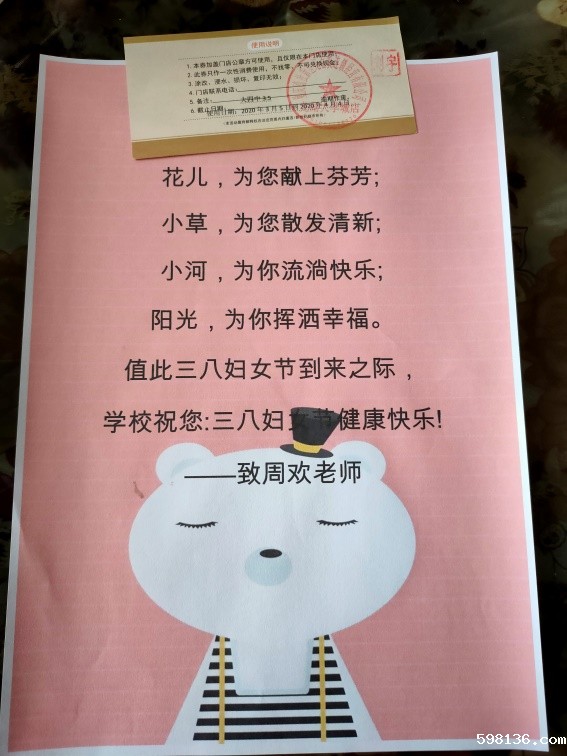 使用说明
1. 本券加盖门店公章方可使用，且仅限在本门店使用；
2. 此券只作一次性消费使用，不找零、不可兑换现金；
3. 涂改、浸水、损坏、复印无效；
4. 门店联系电话：
5. 备注：
6. 截止日期：
使用日期：2020年3月5日到2020年4月4日
花儿，为您献上芬芳;
小草，为您散发清新;
小河，为你流淌快乐;
阳光，为你挥洒幸福。
值此三八妇女节到来之际，
学校祝您:三八妇女节健康快乐!
——致周欢老师
598136.com